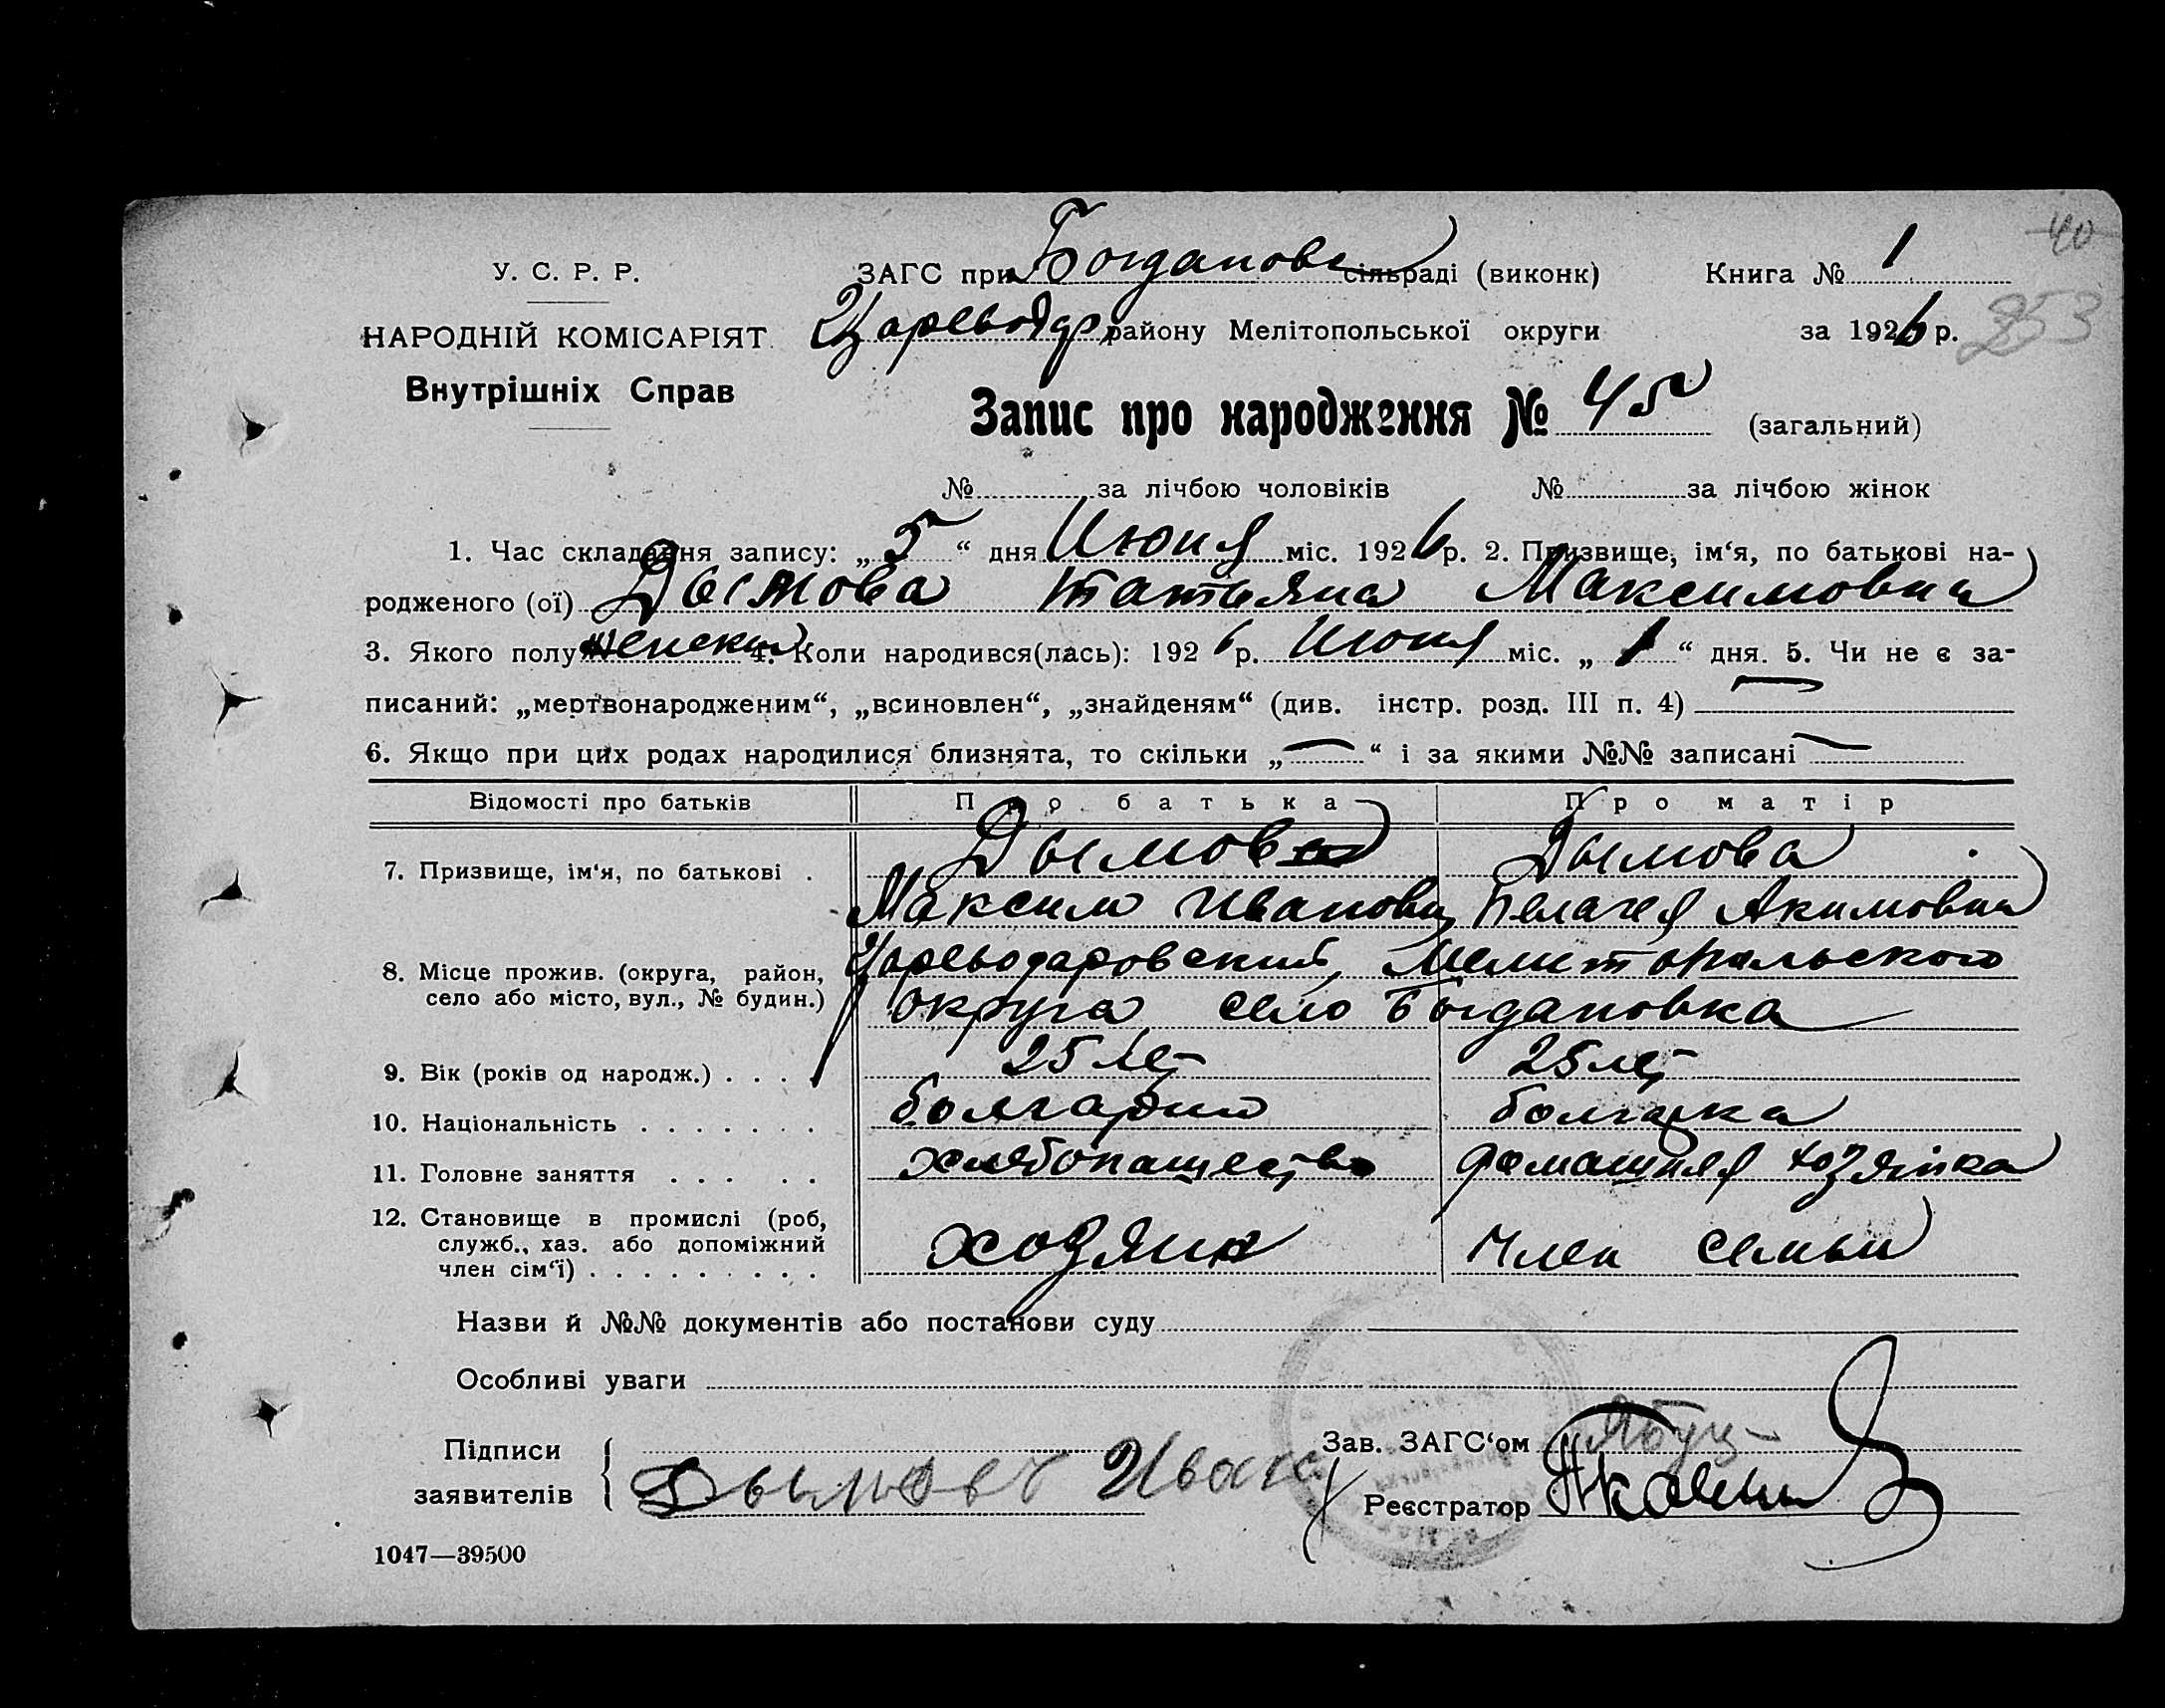 40
У. С. Р. Р. ЗАГС при Богдановс сільраді (виконк) Книга № 1
НАРОДНІЙ КОМІСАРІЯТ Цареводар району Мелітопольської округи за 1926 р. 253
Внутрішніх Справ
Запис про народження № 45 (загальний)
№ за лічбою чоловіків № за лічбою жінок
1. Час складання запису: „5“ дня Июня міс. 1926 р. 2. Призвище, ім‘я, по батькові на-
родженого (ої) Дымова Татьяна Максимовна
3. Якого полу женский 4. Коли народився(лась): 1926 р. Июня міс. „1“ дня. 5. Чи не є за-
писаний: „мертвонародженим“, „всиновлен“, „знайденям“ (див. інстр. розд. III п. 4) —
6. Якщо при цих родах народилися близнята, то скільки „—“ і за якими №№ записані —
Відомості про батьків Про батька Про матір
7. Призвище, ім‘я, по батькові . Дымов Дымова
Максим Иванович Пелагея Акимовна
8. Місце прожив. (округа, район, село або місто, вул., № будин.) Цареводаровский, Мелитопольского
округа село Богдановка
9. Вік (років од народж.) . . . . 25 лет 25 лет
10. Національність . . . . . . . болгарин болгарка
11. Головне заняття . . . . . хлебопашество домашняя хозяйка
12. Становище в промислі (роб, служб., хаз. або допоміжний член сім‘ї) . . . . . . . . . хозяин член семьи
Назви й №№ документів або постанови суду
Особливі уваги
Підписи заявителів Дымов Иван
Зав. ЗАГС‘ом
Реєстратор
1047—39500